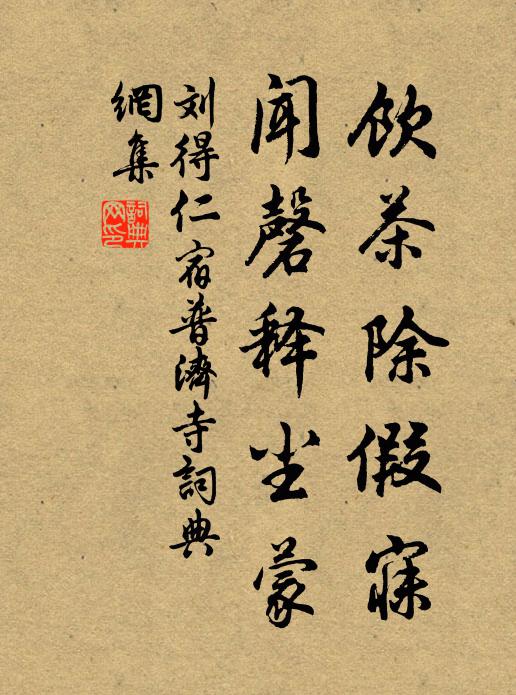 飲茶除假寐
聞磬释尘蒙
刘得仁宿普濟寺詞典
網集
詞典
网印